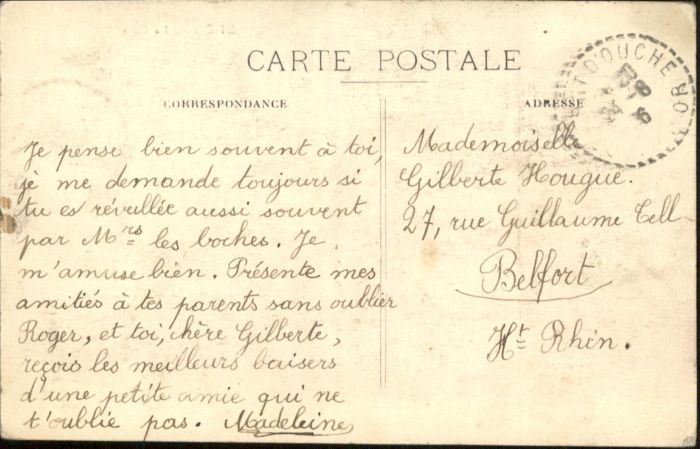 CARTE POSTALE
CORRESPONDANCE
Je pense bien souvent à toi,
je me demande toujours si
tu es réveillée aussi souvent
par Mrs les boches. Je
m'amuse bien. Présente mes
amitiés à tes parents sans oublier
Roger, et toi, chère Gilberte,
reçois les meilleurs baisers
d'une petite amie qui ne
t'oublie pas. Madeleine
ADRESSE
Mademoiselle
Gilberte Hougue.
27, rue Guillaume Tell
Belfort
Ht Rhin.
D'OUCHE